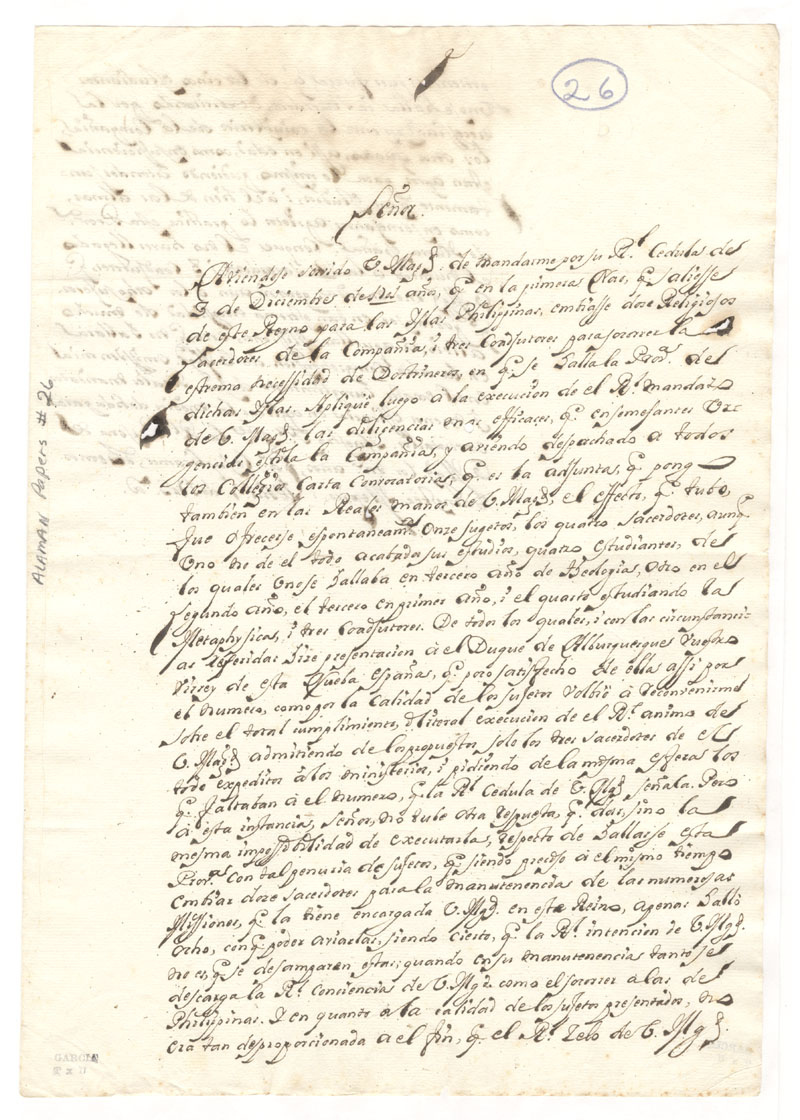 26
Señor.
Aviendose servido V. Magd. de mandarme por su Rl. Cedula de
3 de Diciembre de año, qe. en la primera Nao, qe. saliesse
de este Reyno para las Islas Philipinas, embiasse doze Religiosos
Sacerdotes de la Compañia, i tres Coadjutores para socorrer la
estrema necessidad de Doctrineros, en qe. se halla la Prova. de
dichas Islas. Apliqué luego a la execucion de el Rl. mandato
de V. Magd. las diligencias mas efficaces, qe. en semejantes Ur-
gencias estila la Compañia, y aviendo despachado a todos
los Collegios carta Convocatoria, qe. es la adjunta, qe. pongo
tambien en las Reales manos de V. Magd., el effecto, qe. tubo,
fue ofrecerse espontaneamte. Onze sugetos, los quatro Sacerdotes, aunqe.
Uno no de el todo acabada sus estudios, quatro estudiantes, de
los quales Uno se hallaba en tercero año de Theologia, otro en el
segundo año, el tercero en primer año, i el quarto estudiando la
Metaphysica, i tres Coadjutores. De todos los quales, i con las circunstanci-
as referidas hize presentacion a el Duque de Alburquerque Vuestro
Virrey de esta Nueba España, qe. poco satisfecho de ella assi por
el numero, como por la calidad de los sujetos volbió a reconvenirme
sobre el total cumplimiento, i literal execucion de el Rl. animo de
V. Magd. admitiendo de los propuestos solo los tres sacerdotes de el
todo expeditos à los ministerios, i pidiendo de la mesma esfera los
qe. faltaban à el numero, qe. la Rl. Cedula de V. Mgd. señala. Pero
à esta instancia, Señor, no tube otra respuesta, qe. dar, sino la
mesma impossibilidad de executarla, respecto de hallarse esta
Prova. con tal penuria de sujetos, qe. siendo preciso a el mismo tiempo
embiar doze sacerdotes para la manutenencia de las numerosas
Missiones, qe. la tiene encargada V. Mgd. en este Reino, apenas halló
ocho, con qe. poder aviarlas, siendo cierto, qe. la Rl. intencion de V. Mgd.
no es, qe. se desamparen estas; quando en su manutenencia tanto se
descarga la Rl. Conciencia de V. Mgd. como el socorrer a las de
Philipinas. I en quanto a la calidad de los sujetos presentados, no
era tan desproporcionada a el fin, qe. el Rl. Zelo de V. Mgd.
ALAMAN Papers #26
GARCIA